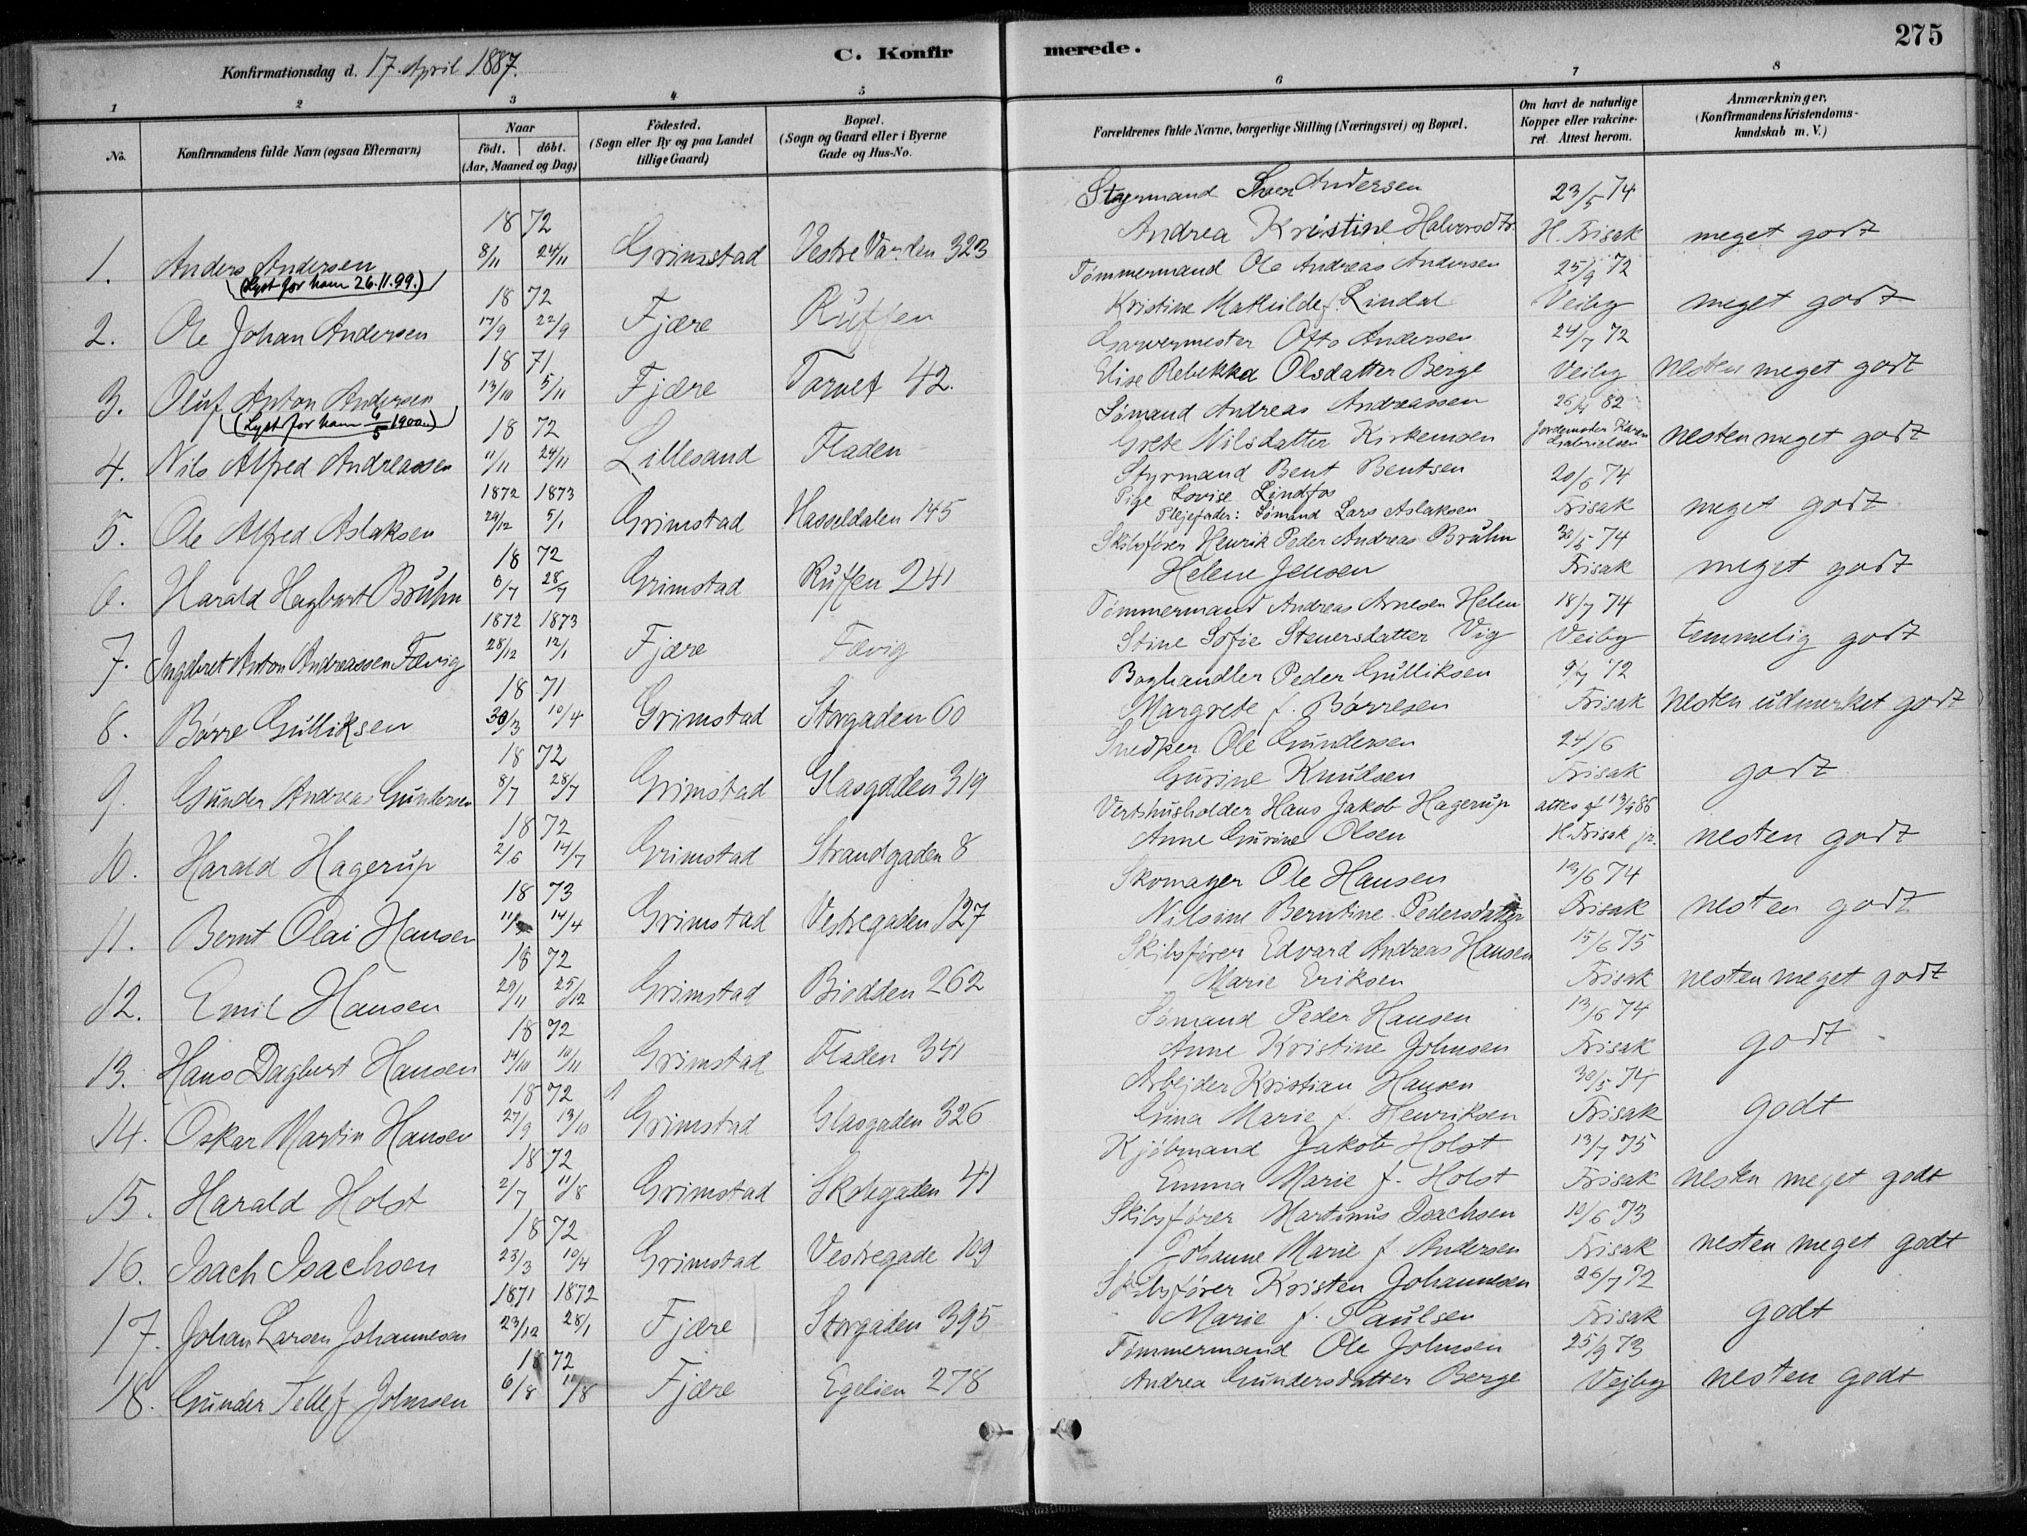 275
C. Konfirmerede.
Konfirmationsdag d. 17. April 1887.
1 2 3 4 5 6 7 8
No. Konfirmandens fulde Navn (ogsaa Efternavn) Naar født. døbt. (Aar, Maaned og Dag) Fødested. (Sogn eller By og paa Landet tillige Gaard) Bopæl. (Sogn og Gaard eller i Byerne Gade og Hus-No. Forældrenes fulde Navne, borgerlige Stilling (Næringsvei) og Bopæl. Om havt de naturlige Kopper eller vakcineret. Attest herom. Anmærkninger. (Konfirmandens Kristendomskundskab m. V.)
Styrmand Andersen 23/5 74
18 72 Andrea Kristine Halvorsdtr. H. Frisak meget godt
1. Anders Andersen 8/11 24/11 Grimstad Vestre Varden 323
(Lyst for ham 26.11.99.) Tømmermand Ole Andreas Andersen 25/9 72
18 72 Kristine Mathilde f. Lindal Veiby meget godt
2. Ole Johan Andersen 17/9 22/9 Fjære Ruffen
18 71 Garvermester Otto Andersen 24/7 72
3. Oluf Anton Andersen 13/10 5/11 Fjære Torvet 42. Elise Rebekka Olsdatter Berge Veiby nesten meget godt
(Lyst for ham 6/5 1900.) Sømand Andreas Andreassen 26/4 82
18 72 Grete Nilsdatter Kirkemoen Jordemoder Gabrielsen nesten meget godt
4. Nils Alfred Andreassen 11/11 24/11 Lillesand Fladen
1872 1873 Styrmand Bent Bentsen 20/6 74
Pige Lovise Lindfos
5. Ole Alfred Aslaksen 29/12 5/1 Grimstad Hasseldalen 145 Plejefader: Sømand Lars Aslaksen Frisak meget godt
18 72 Skibsfører Henrik Peder Andreas Bruhn 30/5 74
6. Harald Hagbart Bruhn 6/7 28/7 Grimstad Ruffen 241 Helene Jensen Frisak meget godt
1872 1873 Tømmermand Andreas Arnesen Helen 18/7 74
7. Ingebret Anton Andreassen Fævig 28/12 12/1 Fjære Fævig Stine Sofie Steuersdatter Vig Veiby temmelig godt
18 71 Boghandler Peder Gulliksen 9/7 72
8. Børre Gulliksen 30/3 10/4 Grimstad Storgaden 60 Margrete f. Børresen Frisak nesten udmerket godt
18 72 Snedker Ole Gundersen 24/6
9. Gunder Andreas Gundersen 8/7 28/7 Grimstad Glasgaden 319 Gurine Knudsen Frisak godt
18 72 Vertshusholder Hans Jakob Hagerup attest af 13/9 86
10. Harald Hagerup 2/6 14/7 Grimstad Strandgaden 8 Anne Gurine Olsen H. Frisak jr. nesten godt
18 73 Skomager Ole Hansen 13/6 74
11. Bernt Olai Hansen 14/4 Grimstad Vestregaden 127 Nilsine Berntine Pedersdatter Frisak nesten godt
18 72 Skibsfører Edvard Andreas Hansen 15/6 75
12. Emil Hansen 29/11 25/12 Grimstad Biodden 262 Marie Eriksen Frisak nesten meget godt
18 72 Sømand Peder Hansen 13/6 74
13. Hans Dagbert Hansen 14/10 10/11 Grimstad Fladen 341 Anne Kristine Johnsen Frisak godt
18 72 Arbejder Kristian Hansen 30/5 74
14. Oskar Martin Hansen 27/9 13/10 Grimstad Glasgaden 326 Gina Marie f. Henriksen Frisak godt
18 72 Kjøbmand Jakob Holst 13/7 75
15. Harald Holst 2/7 11/8 Grimstad Skolegaden 41 Emma Marie f. Holst Frisak nesten meget godt
18 72 Skibsfører Martinus Isachsen 10/6 73
16. Isach Isachsen 23/3 10/4 Grimstad Vestregade 109 Johanne Marie f. Andersen Frisak nesten meget godt
1871 1872 Skibsfører Kristen Johannesen 26/7 72
17. Johan Larsen Johannesen 23/12 28/1 Fjære Storgaden 395 Marie f. Paulsen Frisak godt
18 72 Tømmermand Ole Johnsen 25/9 73
18. Gunder Tellef Johnsen 6/8 11/8 Fjære Egelien 278 Andrea Gundersdatter Berge Vejby nesten godt